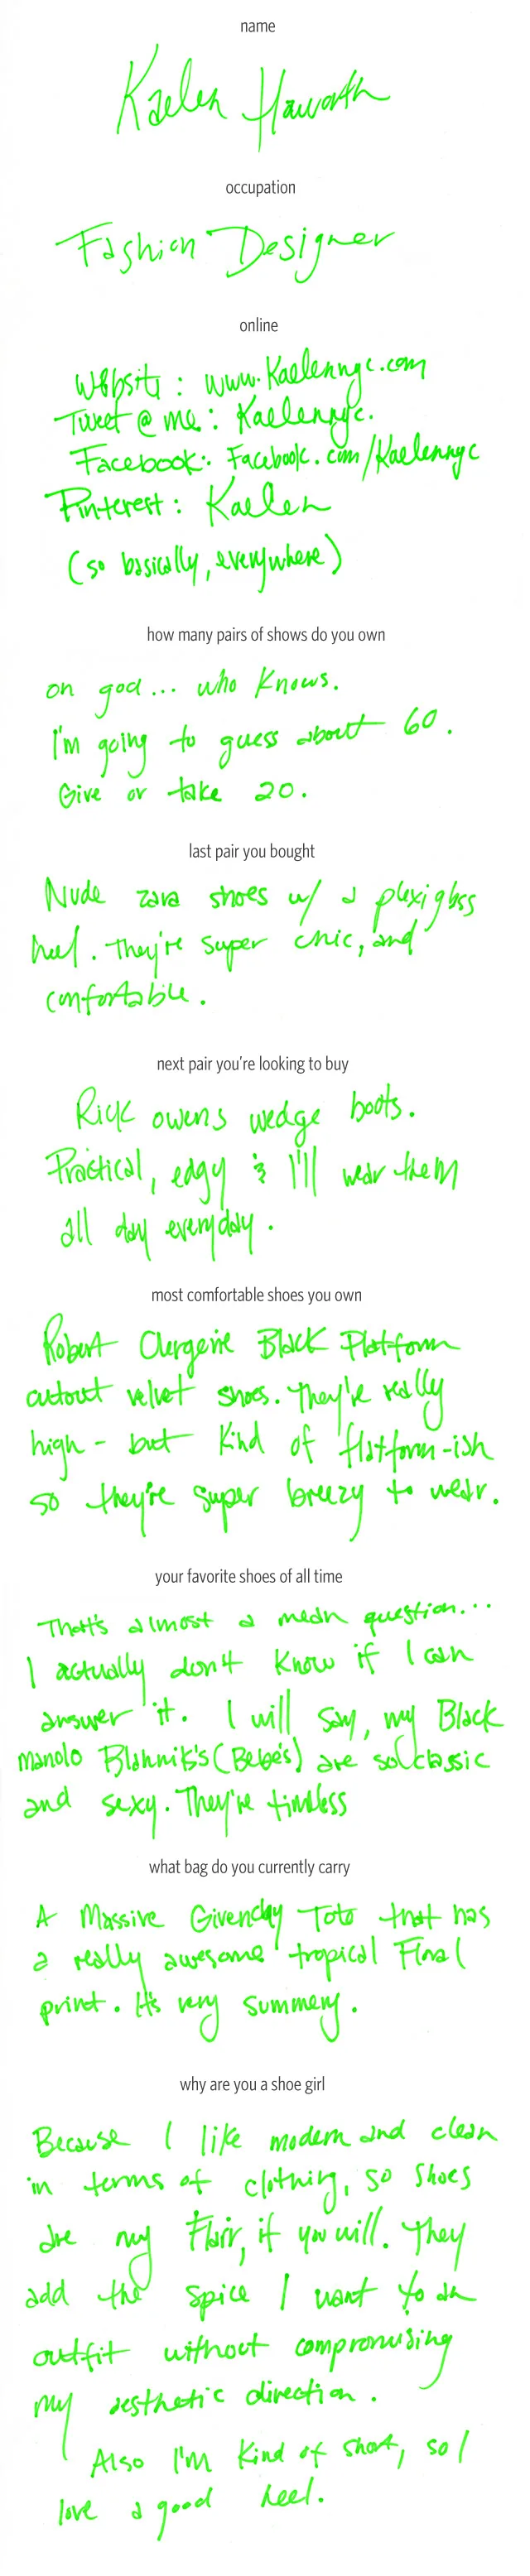 name
Kaelen Haworth
occupation
Fashion Designer
online
Website : www.Kaelennyc.com
Tweet @ me : Kaelennyc.
Facebook: Facebook.com/Kaelennyc
Pinterest : Kaelen
(so basically, everywhere)
how many pairs of shows do you own
oh god... who knows.
I'm going to guess about 60.
Give or take 20.
last pair you bought
Nude zara shoes w/ a plexiglass
heel. They're super chic, and
comfortable.
next pair you're looking to buy
Rick owens wedge boots.
Practical, edgy & I'll wear them
all day everyday.
most comfortable shoes you own
Robert Clergerie Black Platform
cutout velvet shoes. They're really
high - but kind of flatform-ish
so they're super breezy to wear.
your favorite shoes of all time
That's almost a mean question...
I actually don't know if I can
answer it. I will say, my Black
Manolo Blahnik's (Bebe's) are so classic
and sexy. They're timeless
what bag do you currently carry
A Massive Givenchy Tote that has
a really awesome tropical Floral
print. It's very summery.
why are you a shoe girl
Because I like modern and clean
in terms of clothing, so shoes
are my Flair, if you will. They
add the spice I want to an
outfit without compromising
my aesthetic direction.
Also I'm kind of short, so I
love a good heel.